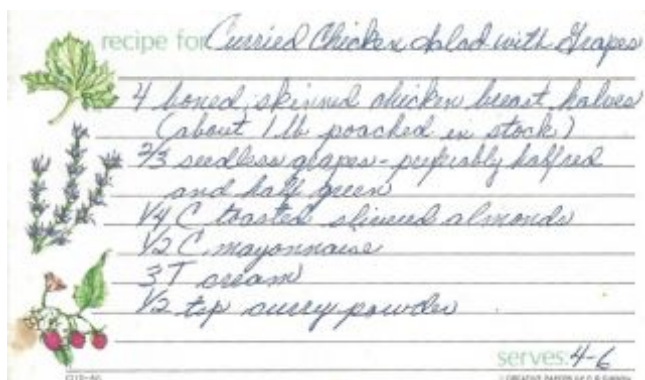 recipe for Curried Chicken Salad with Grapes
4 boned, skinned chicken breast halves
(about 1 lb poached in stock)
2/3 seedless grapes - preferably half red
and half green
1/4 C toasted slivered almonds
1/2 C mayonnaise
3 T cream
1/2 tsp curry powder
serves: 4-6